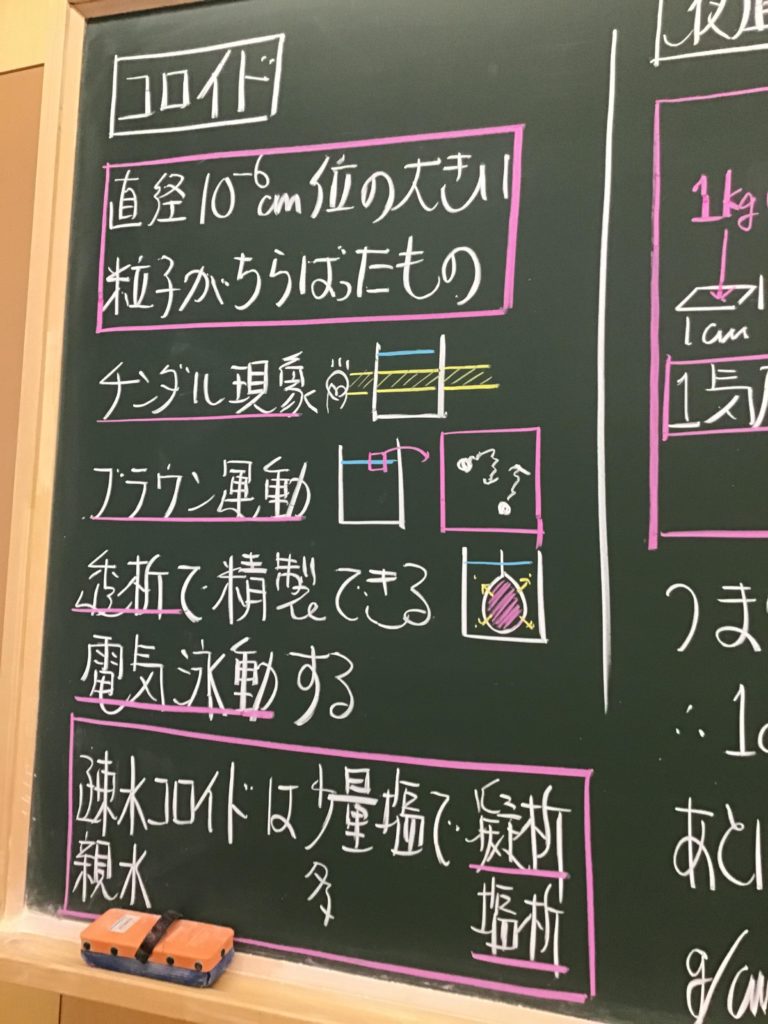 コロイド
直径10⁻⁶cm位の大きい
粒子がちらばったもの
チンダル現象
ブラウン運動
透析で精製できる
電気泳動する
疎水コロイドは少量塩で凝析
親水 多 塩析
1kg
1cm
1気
つま
∴1
あとは
g/cm